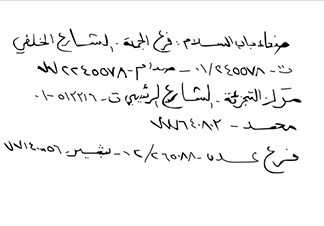 صنعاء باب السلام: فرع الجملة. الشارع الخلفي
ت- ٠١/٢٤٥٥٧٨ - صدام - ٧٧٢٢٤٥٥٧٨
مركز التجزئة. الشارع الرئيسي ت- ٥١٢٢١٦-٠١
محمد - ٧٧٧٦٤٠٨٠٢
فرع عدن - ٠٢/٢٦٥٠٨٨ - بشير - ٧٧١٤٠٠٠٥٦